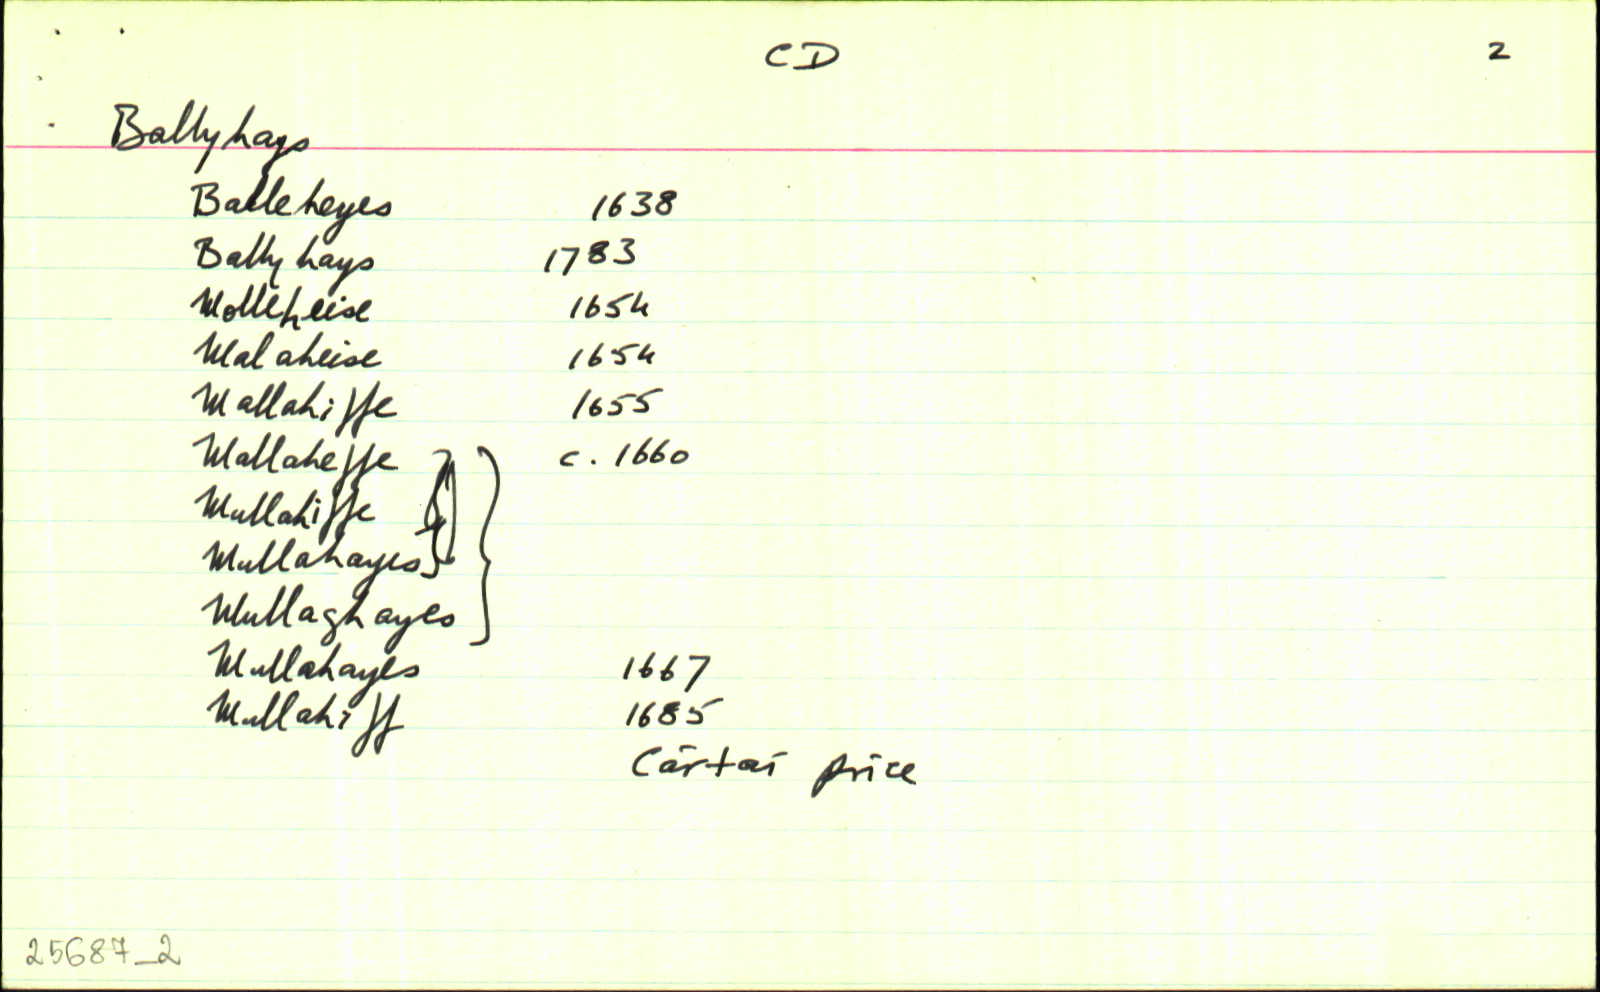 CD 2
Ballyhays
Balleheyes 1638
Ballyhays 1783
Molleheise 1654
Malaheise 1654
Mallahiffe 1655
Mallaheffe c. 1660
Mullahiffe
Mullahayes
Mullaghayes
Mullahayes 1667
Mullahiff 1685
Cártaí Price
25687_2